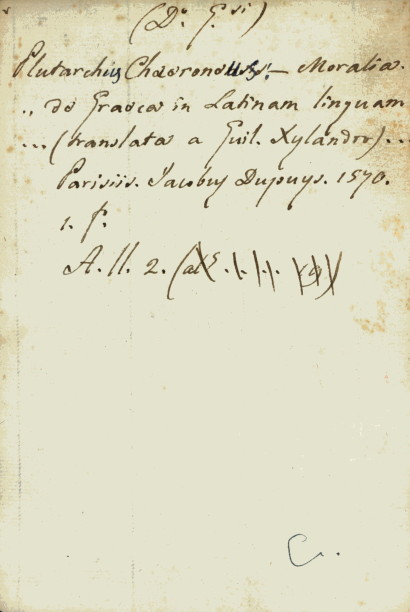 (D.º G.si)
Plutarchus Chaeronensis. — Moralia.
.. de Graeca in Latinam linguam
... (translata a Guil. Xylandro) ...
Parisiis. Jacobus Dupuys. 1570.
1. f.º
A. ll. 2.
C.